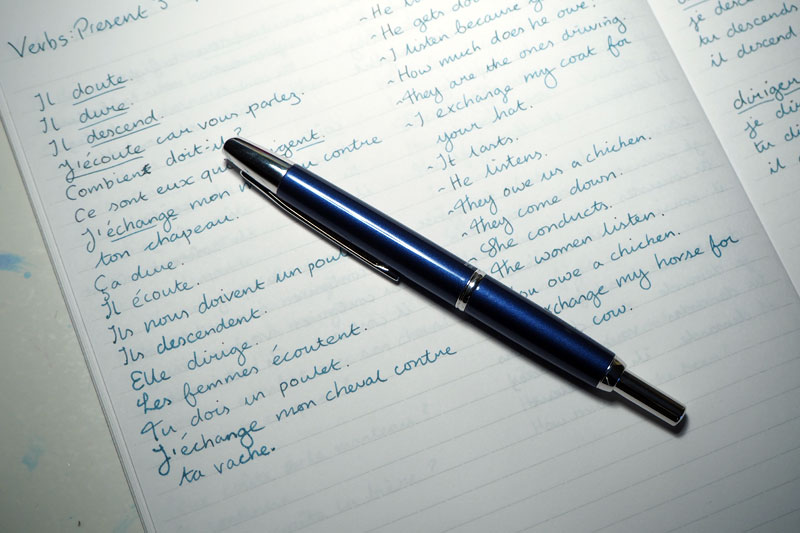 Verbs: Present 3
Il doute.
Il dure.
Il descend.
J'écoute car vous parlez.
Combient doit-il?
Ce sont eux
J'échange mon contre
ton chapeau.
Ça dure.
Il écoute.
Ils nous doivent un
Ils descendent.
Elle dirige.
Les femmes écoutent.
Tu dois un poulet.
J'échange mon cheval contre
ta vache.
- He
- He gets
- I listen because
- How much does he owe?
- They are the ones driving.
- I exchange my coat for
your hat.
- It lasts.
- He listens.
- They owe us a chicken.
- They come down.
- She conducts.
The women listen.
you owe a chicken.
exchange my horse for
cow.
je descends
tu descends
il descend
diriger
je
tu
il